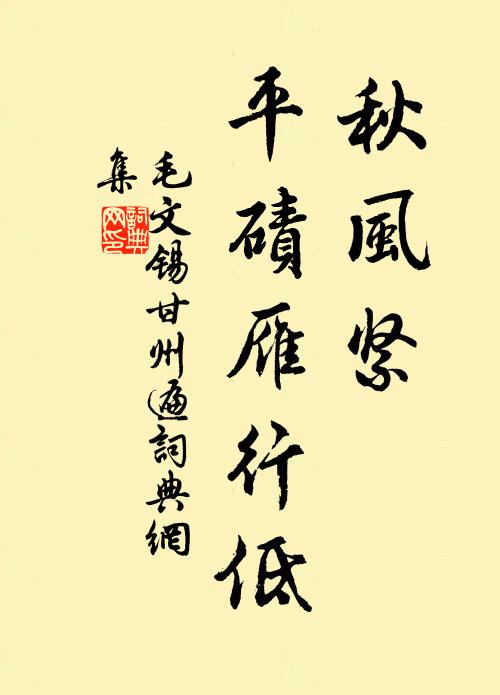 秋風紧
平磧雁行低
毛文锡甘州遍詞典網
集
詞典
网印